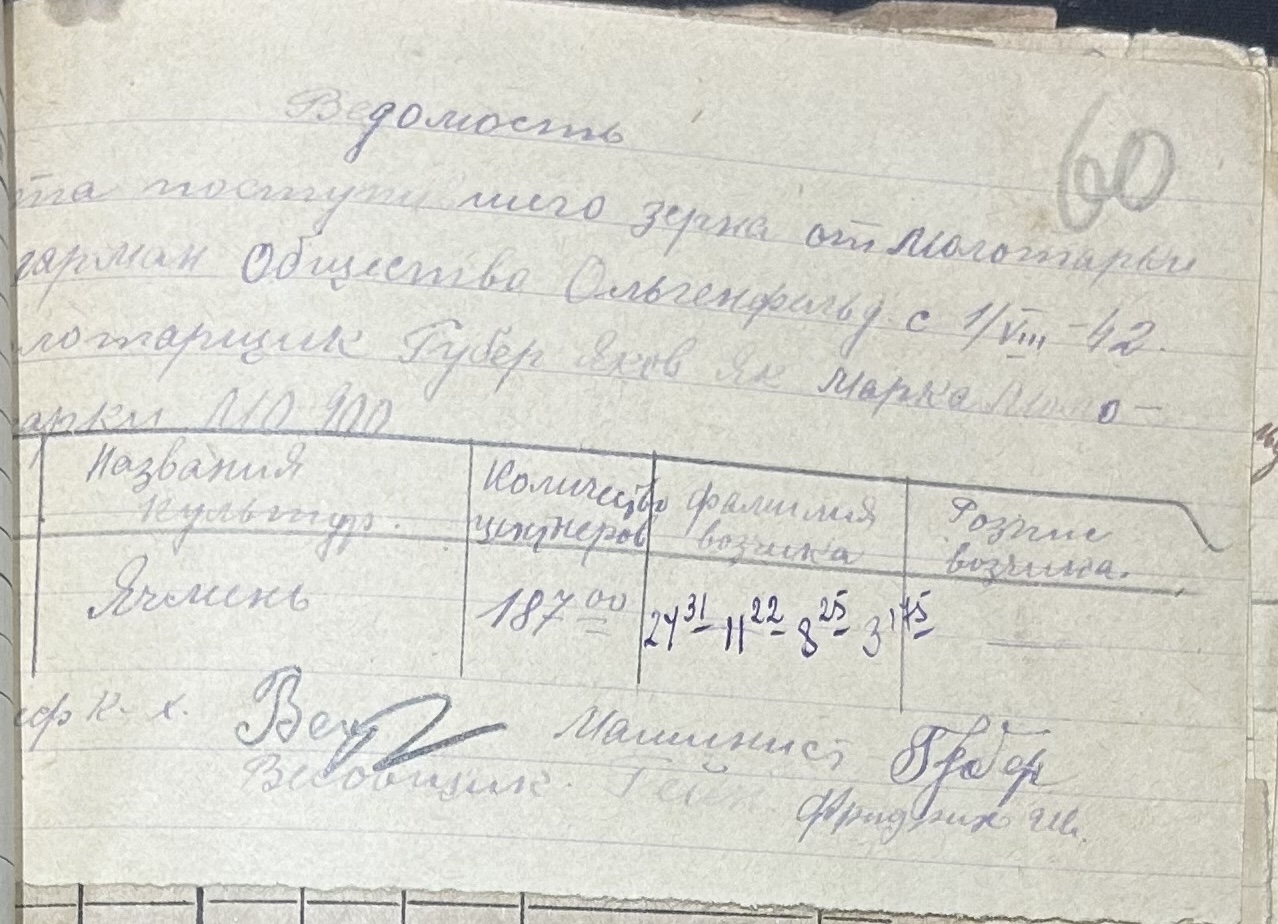 Ведомость
60
та поступившего зерна от молотарки
гарман Общества Ольгенфельд с 1/VIII-42.
лотарщик Губер Яков Як Марка Моло-
арки МО 900
Названия культур.
Количество центнеров
фамилия возчика
Розпис возчика.
Ячмень
187 00
27 31 11 22 8 25 3 1 75
еф к. х.
Машинист Губер
Весовщик. Гейн
Фридрих